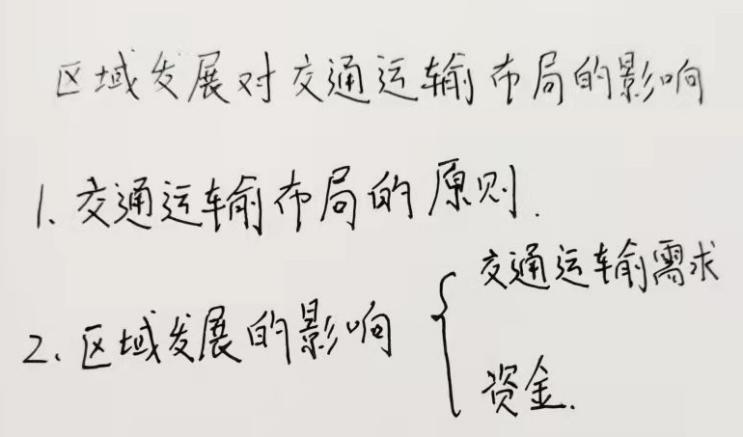 区域发展对交通运输布局的影响
1. 交通运输布局的原则.
2. 区域发展的影响 { 交通运输需求
资金.